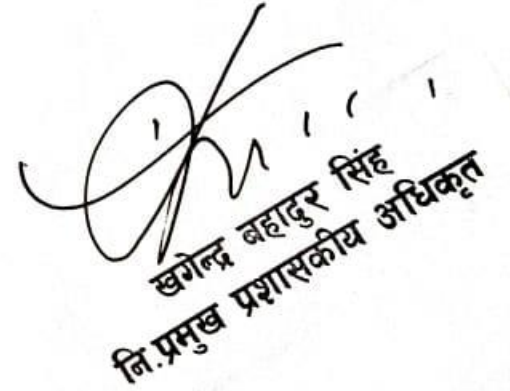 खगेन्द्र बहादुर सिंह
नि.प्रमुख प्रशासकीय अधिकृत